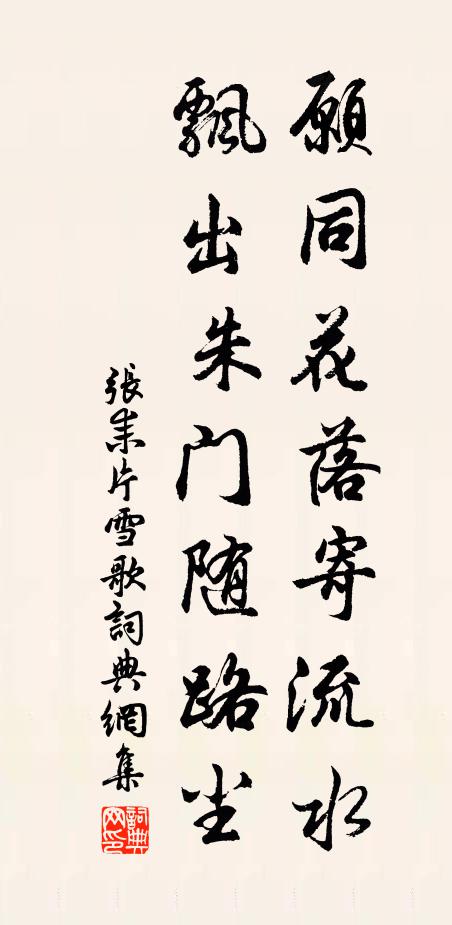 願同花落寄流水
飄出朱门随路尘
張耒片雪歌詞典網集
詞典网印